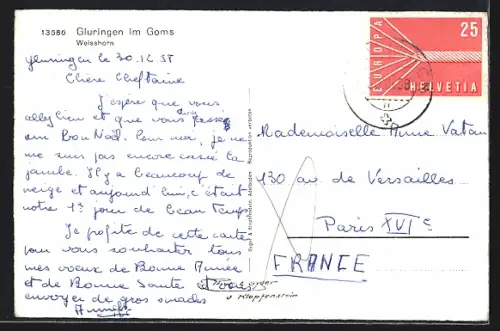 13586 Gluringen im Goms
Weisshorn
Gluringen le 30.12.58
Chère Cheftaine
J'espère que vous
allez bien et que vous
un Bon Noël. Pour moi, je ne
me suis pas encore cassé la
jambe. Il y a beaucoup de
neige et aujourd'hui, c'était
notre 1er jour de beau temps
Je profite de cette carte
pour vous souhaiter tous
mes voeux de Bonne Année
et de Bonne Santé et vous
envoyer de gros
EUROPA
25
HELVETIA
Mademoiselle Anne Vatan
130 av de Versailles
Paris XVIe
FRANCE
& Klopfenstein